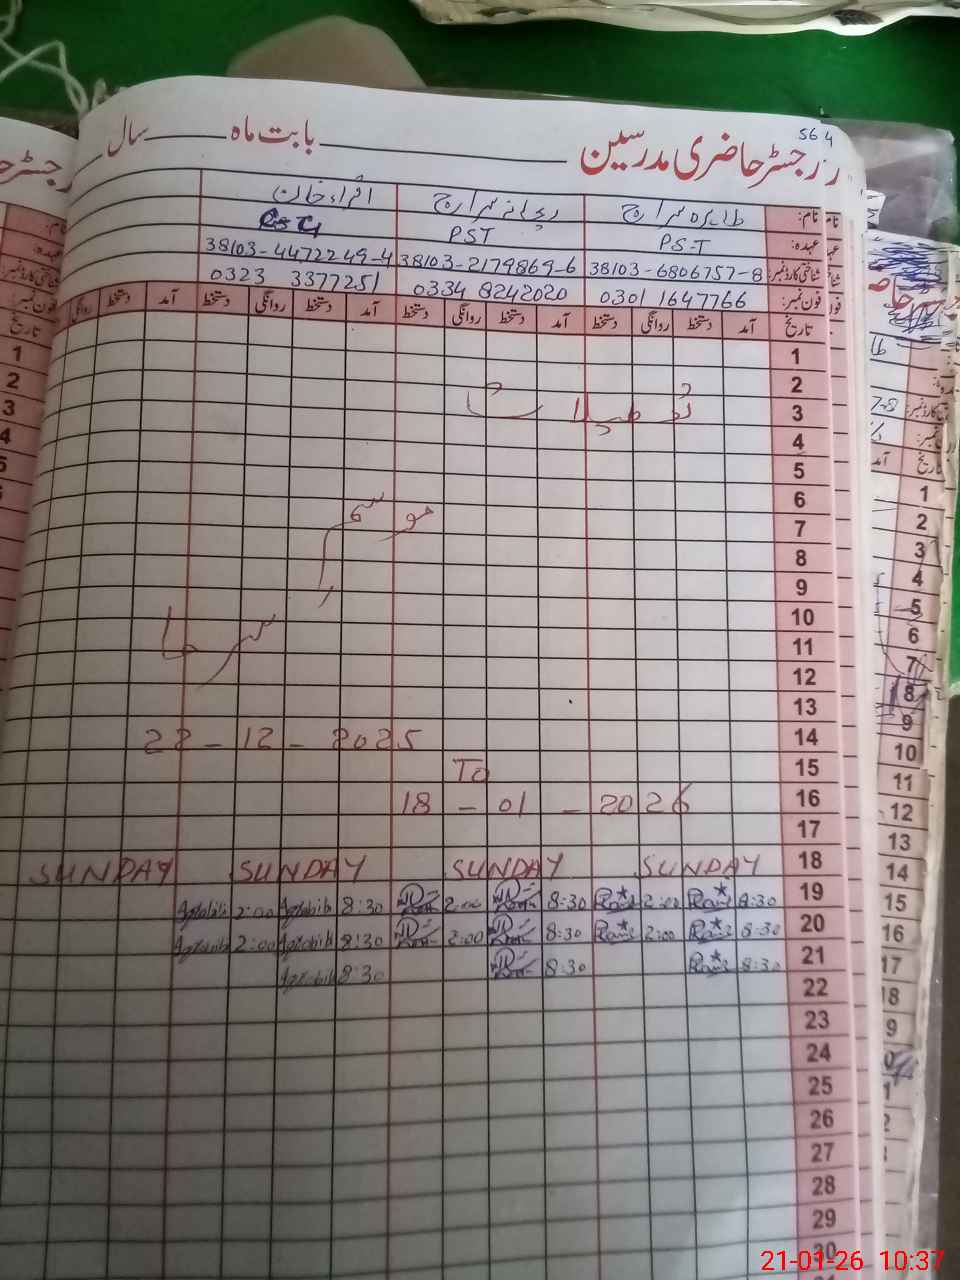 564
رجسٹر حاضری مدرسین بابت ماہ سال
نام: طاہرہ سراج ریحانہ سراج اقراء خان
عہدہ: PST PST
شناختی کارڈ نمبر: 38103-6806757-8 38103-2179869-6 38103-4472249-4
فون نمبر: 0301 1647766 0334 8242020 0323 3377251
تاریخ آمد دستخط روانگی دستخط آمد دستخط روانگی دستخط آمد دستخط روانگی دستخط آمد دستخط روانگی
1
2
3 تعطیلات
4
5
6
7 موسم
8
9
10
11 سرما
12
13
14 22-12-2025
15 To
16 18-01-2026
17
18 SUNDAY SUNDAY SUNDAY SUNDAY
19 8:30 2:00 8:30 2:00 8:30 2:00
20 8:30 2:00 8:30 2:00 8:30 2:00
21 8:30 8:30 8:30
22
23
24
25
26
27
28
29
30
آمد تاریخ
1
2
3
4
5
6
7
8
9
10
11
12
13
14
15
16
17
18
21-01-26 10:37